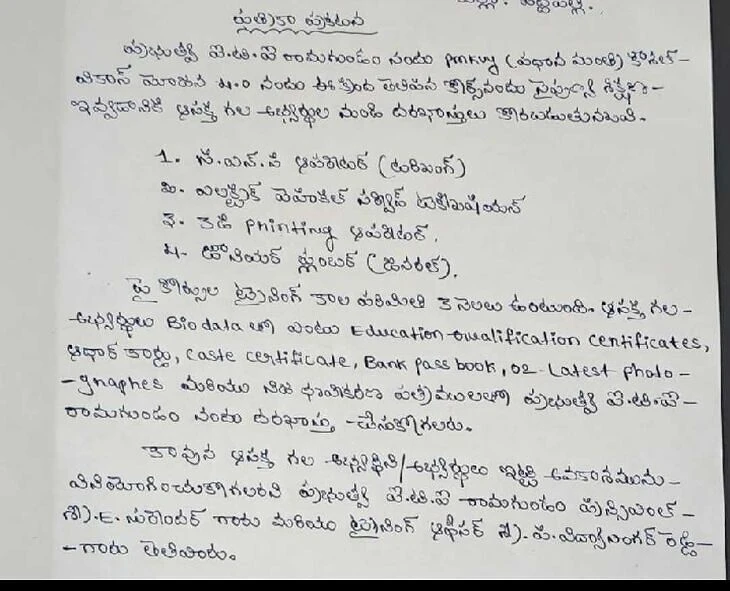 జిల్లా: పెద్దపల్లి.
పత్రికా ప్రకటన
ప్రభుత్వ ఐ.టి.ఐ రామగుండం నందు pmkvy (ప్రధాన మంత్రి) కౌశల్-
వికాస్ యోజన 4.0 నందు ఈ క్రింద తెలిపిన కోర్స్ నందు నైపుణ్య శిక్షణ-
ఇవ్వడానికి ఆసక్తి గల అభ్యర్థుల నుండి దరఖాస్తులు కోరబడుతున్నవి.
1. సి.ఎన్.సి ఆపరేటర్ (టర్నింగ్)
2. ఎలక్ట్రిక్ వెహికిల్ సర్వీస్ టెక్నీషియన్
3. 3డి printing ఆపరేటర్.
4. జూనియర్ ప్లంబర్ (జనరల్).
పై కోర్సుల ట్రైనింగ్ కాల పరిమితి 3 నెలలు ఉంటుంది. ఆసక్తి గల-
అభ్యర్థులు Biodata తో పాటు Education Qualification certificates,
ఆధార్ కార్డు, caste certificate, Bank pass book, 02-Latest photo-
-graphes మరియు నిజ ధ్రువీకరణ పత్రములతో ప్రభుత్వ ఐ.టి.ఐ-
రామగుండం నందు దరఖాస్తు చేసుకోగలరు.
కావున ఆసక్తి గల అభ్యర్థిని/అభ్యర్థులు ఇట్టి అవకాశమును-
వినియోగించుకోగలరని ప్రభుత్వ ఐ.టి.ఐ రామగుండం ప్రిన్సిపల్-
శ్రీ.E. సురేందర్ గారు మరియు ట్రైనింగ్ ఆఫీసర్ శ్రీ. రెడ్డి-
-గారు తెలిపారు.